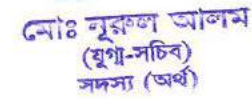 মোঃ নূরুল আলম
(যুগ্ম-সচিব)
সদস্য (অর্থ)